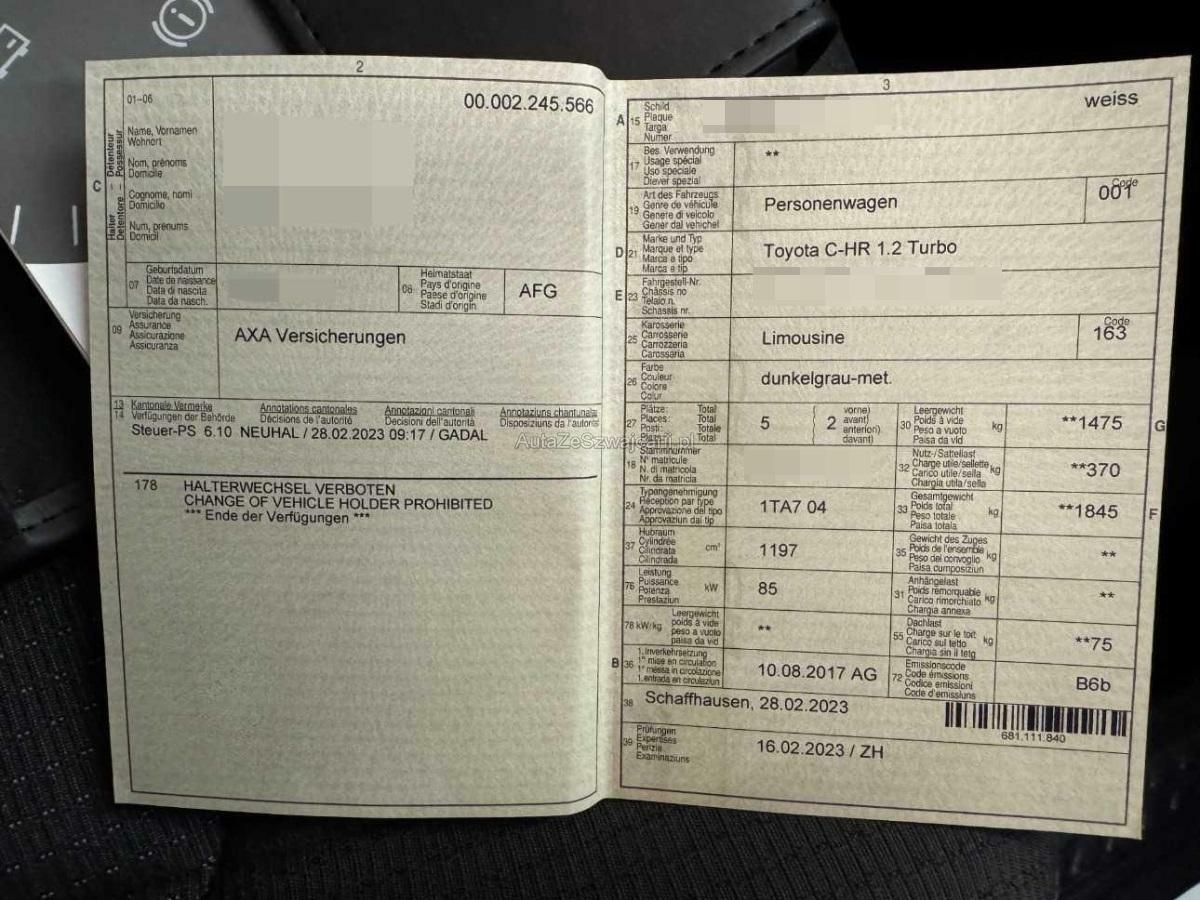 2
01-06
00.002.245.566
C
Halter – Détenteur
Detentore – Possessur
Name, Vornamen
Wohnort
Nom, prénoms
Domicile
Cognome, nomi
Domicilio
Num, prenums
Domicil
07
Geburtsdatum
Date de naissance
Data di nascita
Data da nasch.
08
Heimatstaat
Pays d'origine
Paese d'origine
Stadi d'origin
AFG
09
Versicherung
Assurance
Assicurazione
Assicuranza
AXA Versicherungen
13
14
Kantonale Vermerke
Verfügungen der Behörde
Annotations cantonales
Décisions de l'autorité
Annotazioni cantonali
Decisioni dell'autorità
Annotaziuns chantunalas
Disposiziuns da l'autoritad
Steuer-PS 6.10 NEUHAL / 28.02.2023 09:17 / GADAL
178 HALTERWECHSEL VERBOTEN
CHANGE OF VEHICLE HOLDER PROHIBITED
*** Ende der Verfügungen ***
AutaZeSzwajcarii.pl
3
A 15
Schild
Plaque
Targa
Numer
weiss
17
Bes. Verwendung
Usage spécial
Uso speciale
Diever spezial
**
19
Art des Fahrzeugs
Genre de véhicule
Genere di veicolo
Gener dal vehichel
Personenwagen
Code
001
D 21
Marke und Typ
Marque et type
Marca e tipo
Marca e tip
Toyota C-HR 1.2 Turbo
E 23
Fahrgestell-Nr.
Châssis no
Telaio n.
Schassis nr.
25
Karosserie
Carrosserie
Carrozzeria
Carossaria
Limousine
Code
163
26
Farbe
Couleur
Colore
Colur
dunkelgrau-met.
27
Plätze: Total
Places: Total
Posti: Totale
Plazs: Total
5
2
vorne)
avant)
anteriori)
davant)
30
Leergewicht
Poids à vide
Peso a vuoto
Paisa da vid
kg
**1475
G
18
Stammnummer
N° matricule
N. di matricola
Nr. da matricla
32
Nutz-/Sattellast
Charge utile/sellette
Carico utile/sella
Chargia utila/sella
kg
**370
24
Typengenehmigung
Réception par type
Approvazione del tipo
Approvaziun dal tip
1TA7 04
33
Gesamtgewicht
Poids total
Peso totale
Paisa totala
kg
**1845
F
37
Hubraum
Cylindrée
Cilindrata
Cilindrada
cm³
1197
35
Gewicht des Zuges
Poids de l'ensemble
Peso del convoglio
Paisa cumposiziun
kg
**
76
Leistung
Puissance
Potenza
Prestaziun
kW
85
31
Anhängelast
Poids remorquable
Carico rimorchiato
Chargia annexa
kg
**
78 kW/kg
Leergewicht
poids à vide
peso a vuoto
paisa da vid
**
55
Dachlast
Charge sur le toit
Carico sul tetto
Chargia sin il tetg
kg
**75
B 36
1. Inverkehrsetzung
1re mise en circulation
1a messa in circolazione
1. entrada en circulaziun
10.08.2017 AG
72
Emissionscode
Code émissions
Codice emissioni
Code d'emissiuns
B6b
38
Schaffhausen, 28.02.2023
681.111.840
39
Prüfungen
Expertises
Perizie
Examinaziuns
16.02.2023 / ZH